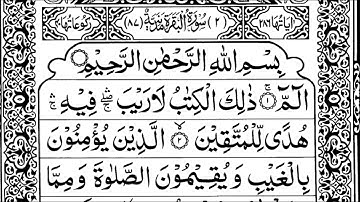 اٰیَاتُهَا ٢٨٦ (٢) سُوْرَةُ الْبَقَرَةِ مَدَنِیَّةٌ (٨٧) رُكُوْعَاتُهَا
بِسْمِ اللّٰهِ الرَّحْمٰنِ الرَّحِیْمِ
الٓمّٓ ۚ١ ذٰلِكَ الْكِتٰبُ لَا رَیْبَ ۛۖ فِیْهِ ۛۚ
هُدًی لِّلْمُتَّقِیْنَ ۙ٢ الَّذِیْنَ یُؤْمِنُوْنَ
بِالْغَیْبِ وَیُقِیْمُوْنَ الصَّلٰوةَ وَمِمَّا